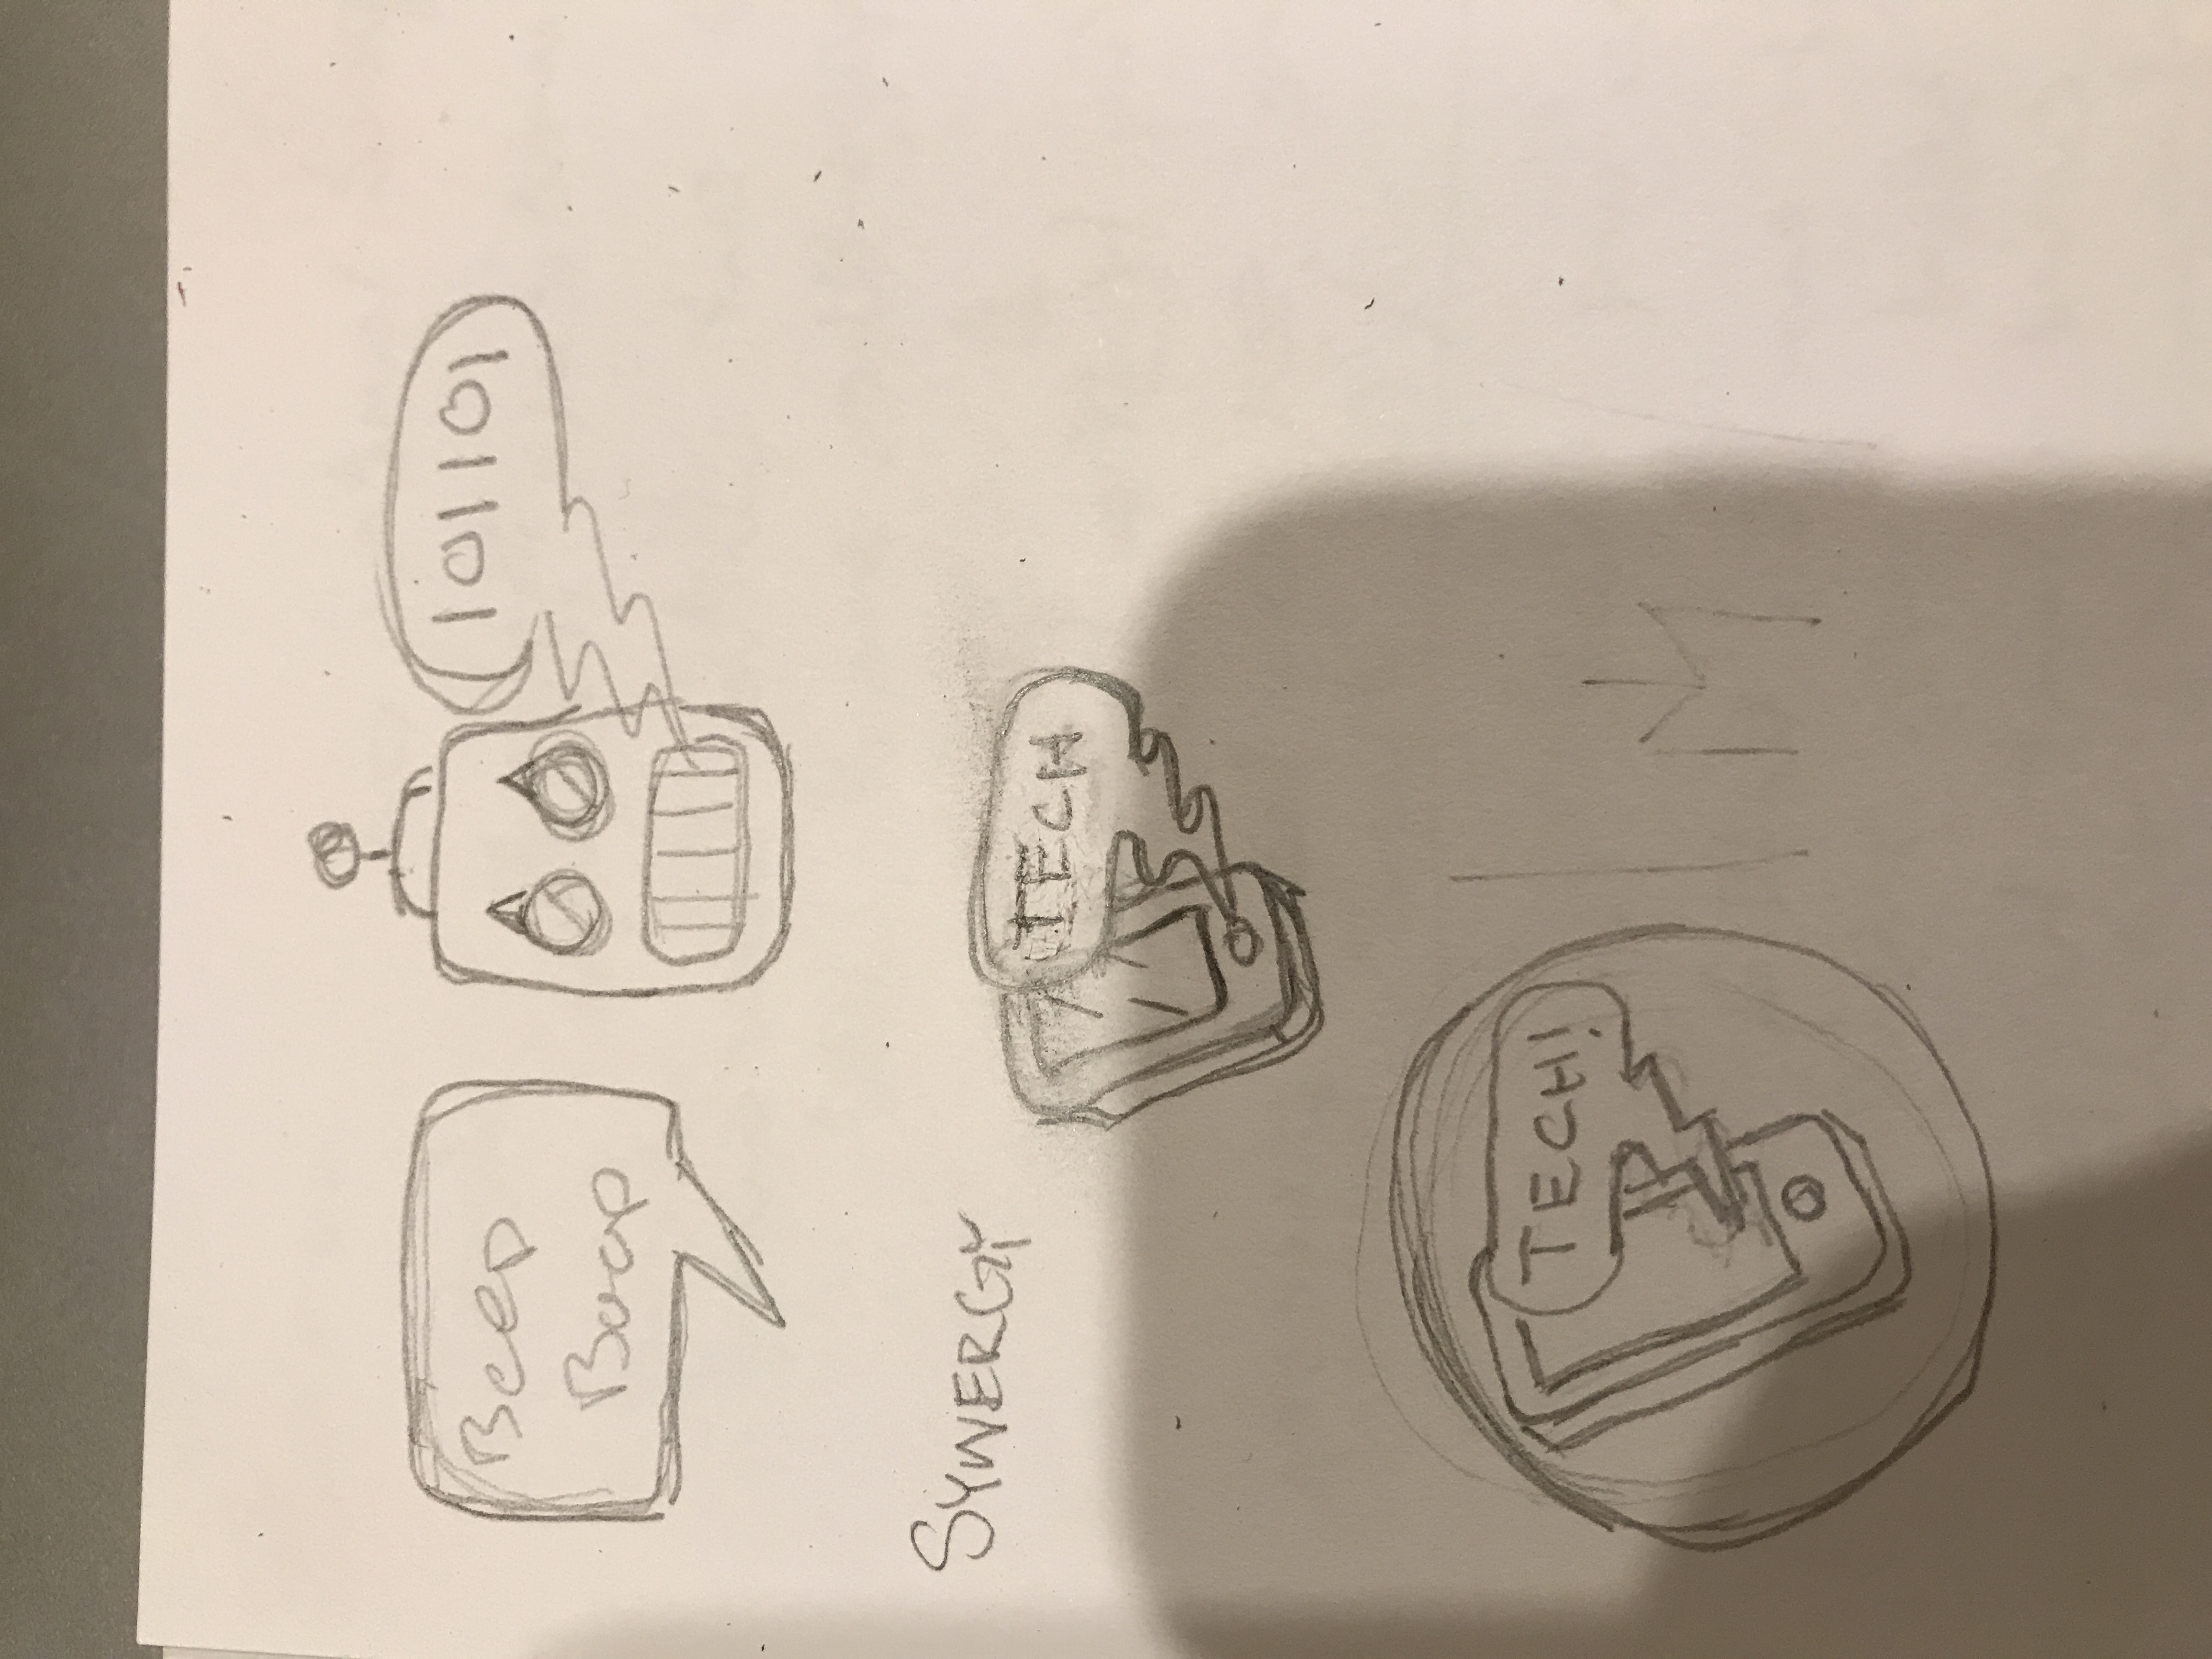 Beep
Boop
101101
SYNERGY
TECH
TECH!